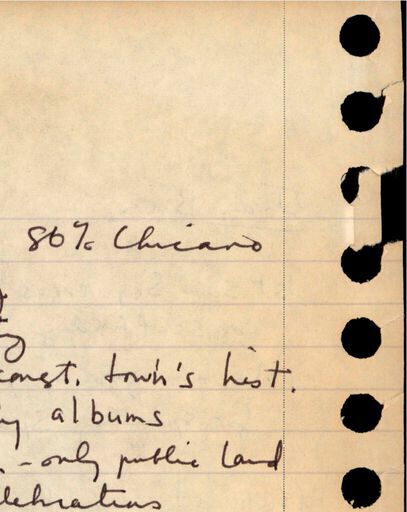 86% Chicano
const. town's hist.
albums
- only public land
lebrations